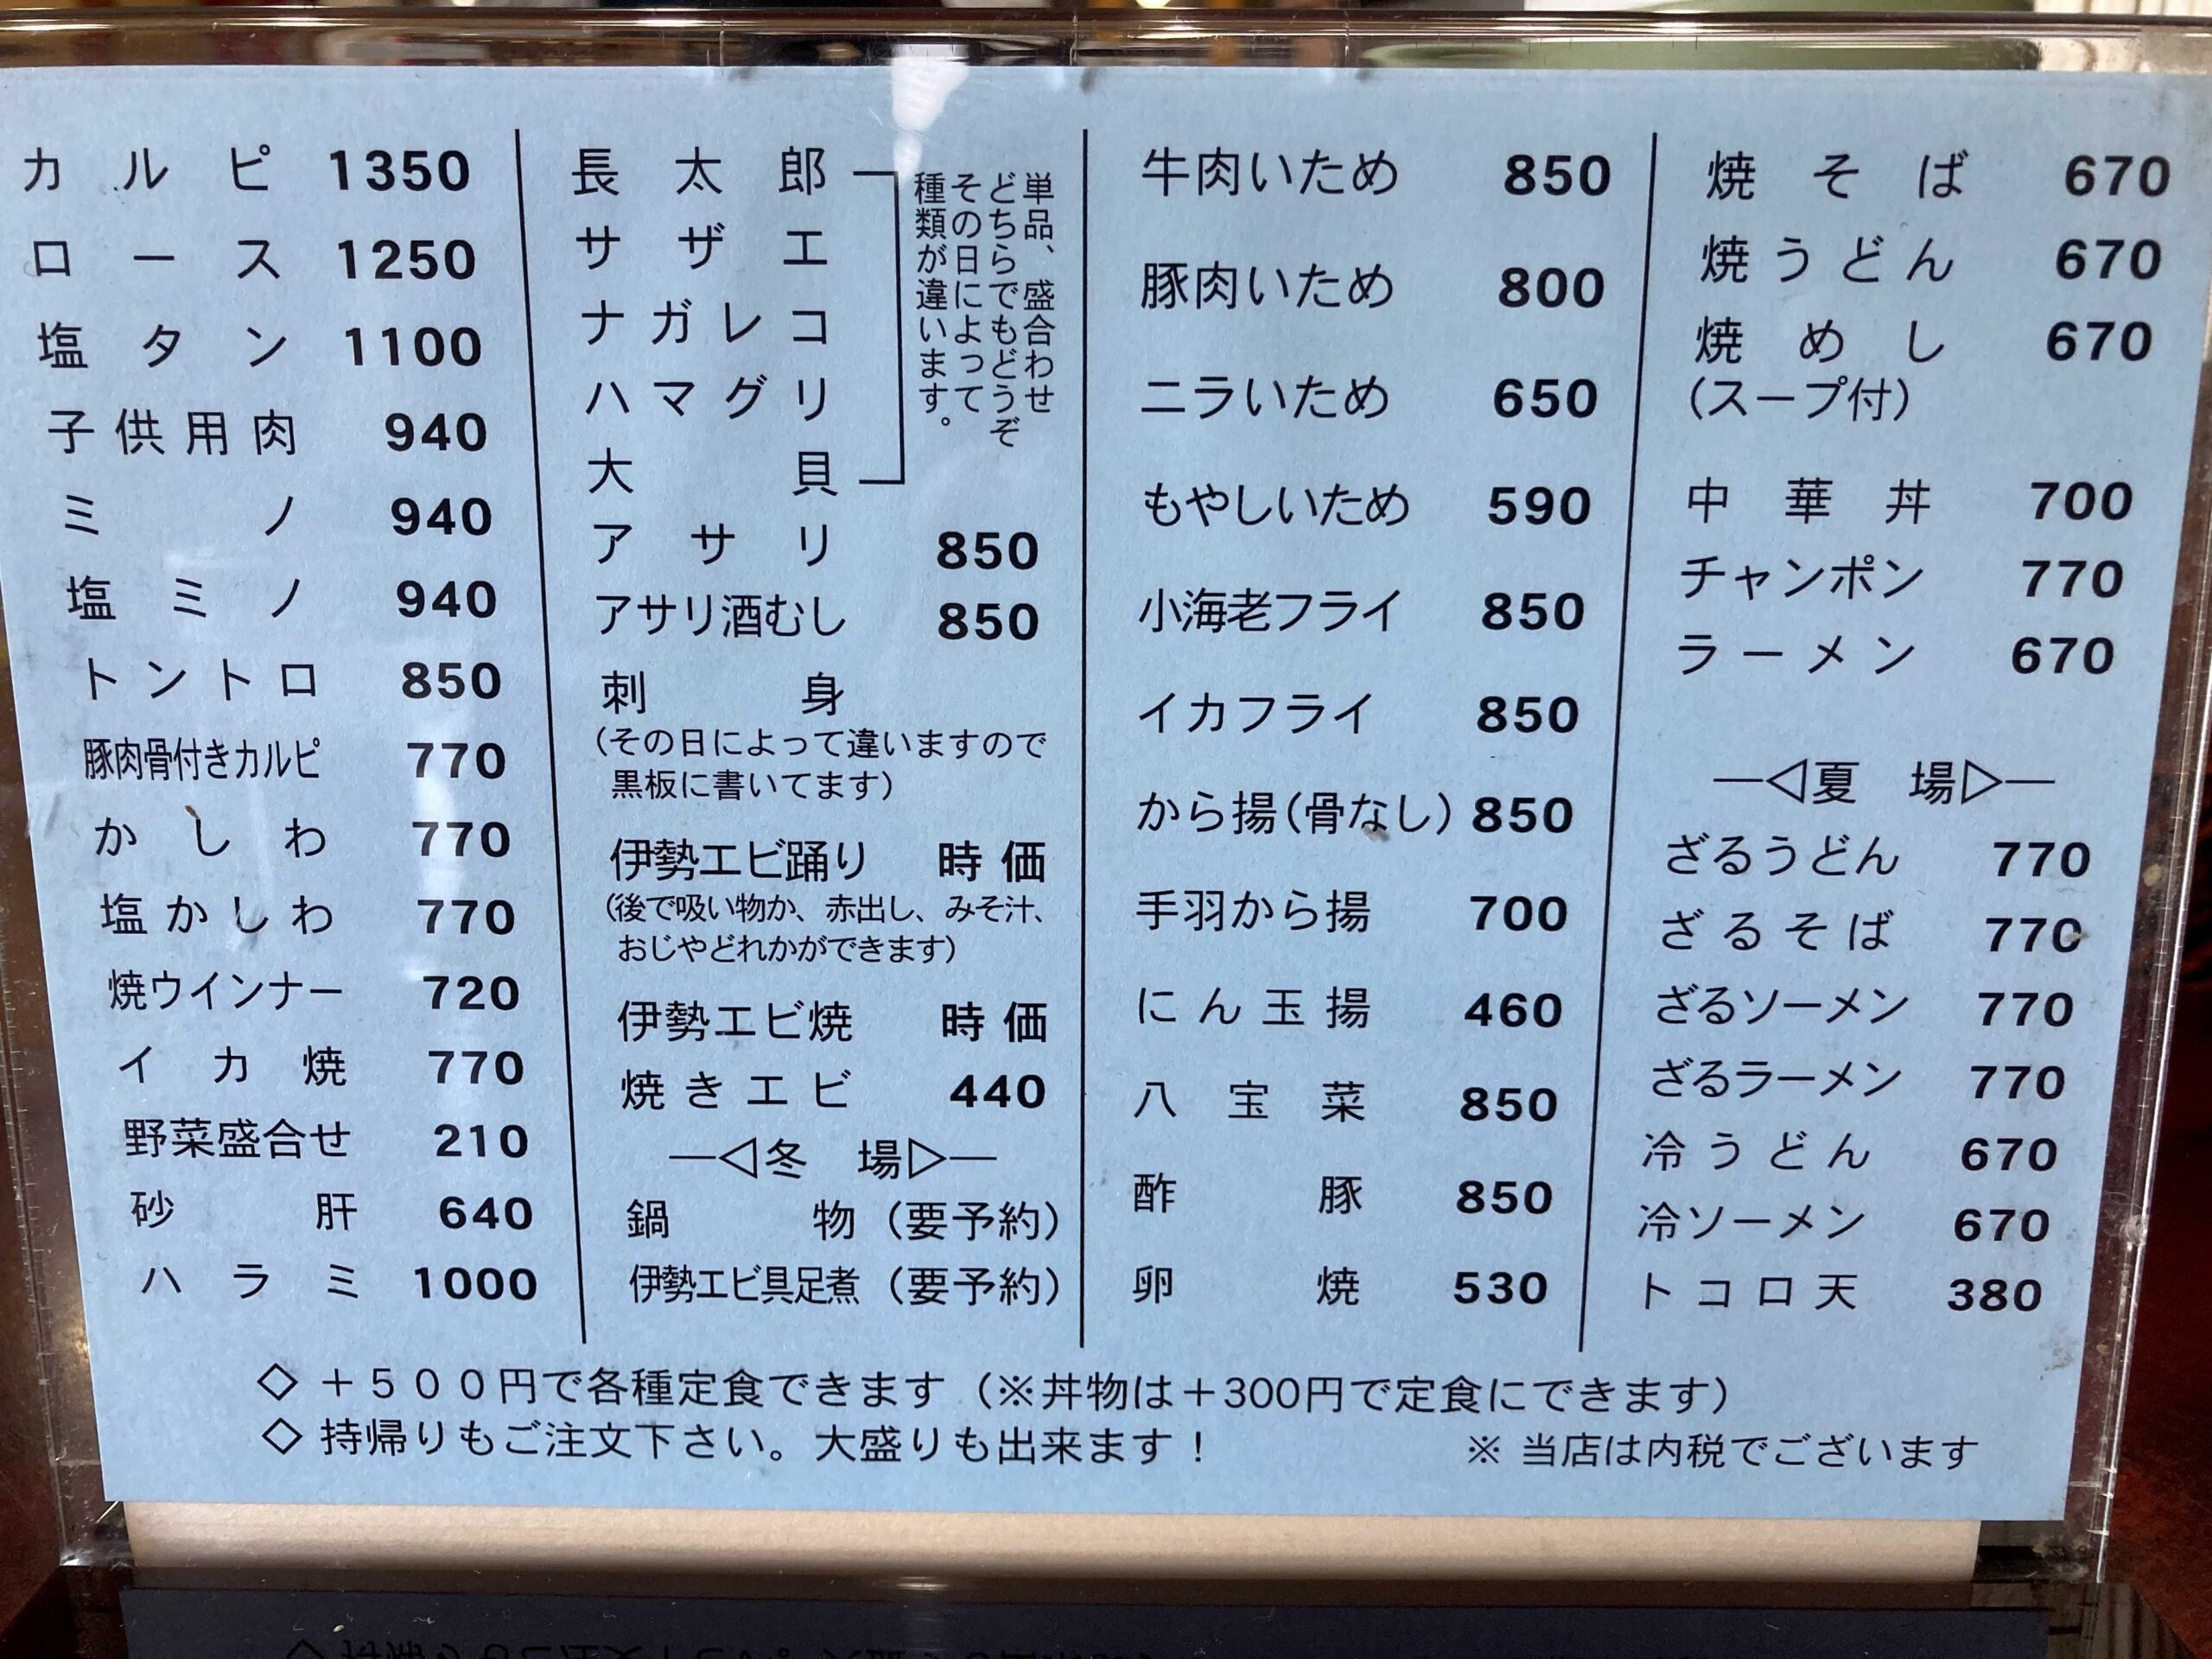 カルピ 1350
ロース 1250
塩タン 1100
子供用肉 940
ミノ 940
塩ミノ 940
トントロ 850
豚肉骨付きカルピ 770
かしわ 770
塩かしわ 770
焼ウインナー 720
イカ焼 770
野菜盛合せ 210
砂肝 640
ハラミ 1000
長太郎
サザエ
ナガレコ
ハマグリ
大貝
単品、盛合わせ
どちらでもどうぞ
その日によって
種類が違います。
アサリ 850
アサリ酒むし 850
刺身
（その日によって違いますので
黒板に書いてます）
伊勢エビ踊り 時価
（後で吸い物か、赤出し、みそ汁、
おじやどれかができます）
伊勢エビ焼 時価
焼きエビ 440
―◁冬 場▷―
鍋物（要予約）
伊勢エビ具足煮（要予約）
牛肉いため 850
豚肉いため 800
ニラいため 650
もやしいため 590
小海老フライ 850
イカフライ 850
から揚（骨なし） 850
手羽から揚 700
にん玉揚 460
八宝菜 850
酢豚 850
卵焼 530
焼そば 670
焼うどん 670
焼めし 670
（スープ付）
中華丼 700
チャンポン 770
ラーメン 670
―◁夏 場▷―
ざるうどん 770
ざるそば 770
ざるソーメン 770
ざるラーメン 770
冷うどん 670
冷ソーメン 670
トコロ天 380
◇ ＋５００円で各種定食できます（※丼物は＋300円で定食にできます）
◇ 持帰りもご注文下さい。大盛りも出来ます！ ※ 当店は内税でございます